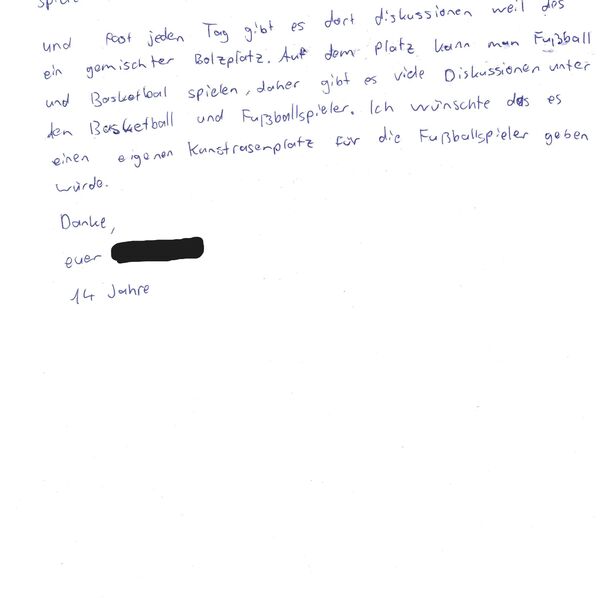 und fast jeden Tag gibt es dort diskussionen weil das
ein gemischter Bolzplatz. Auf dem platz kann man Fußball
und Basketball spielen, daher gibt es viele Diskussionen unter
den Basketball und Fußballspieler. Ich wünschte das es
einen eigenen Kunstrasenplatz für die Fußballspieler geben
würde.
Danke,
euer
14 Jahre